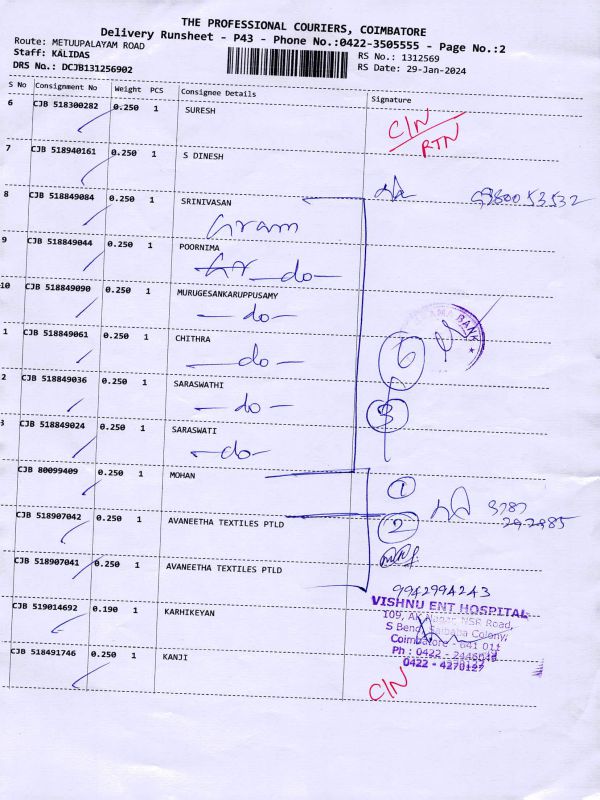 THE PROFESSIONAL COURIERS, COIMBATORE
Delivery Runsheet - P43 - Phone No.:0422-3505555 - Page No.:2
Route: METUUPALAYAM ROAD
Staff: KALIDAS
RS No.: 1312569
DRS No.: DCJB131256902
RS Date: 29-Jan-2024
S No Consignment No Weight PCS Consignee Details Signature
6 CJB 518300282 0.250 1 SURESH
C/N
RTN
7 CJB 518940161 0.250 1 S DINESH
8 CJB 518849084 0.250 1 SRINIVASAN
9 CJB 518849044 0.250 1 POORNIMA
-do-
10 CJB 518849090 0.250 1 MURUGESANKARUPPUSAMY
-do-
1 CJB 518849061 0.250 1 CHITHRA
-do-
BANK
6
2 CJB 518849036 0.250 1 SARASWATHI
-do-
3
3 CJB 518849024 0.250 1 SARASWATI
-do-
CJB 80099409 0.250 1 MOHAN
1
CJB 518907042 0.250 1 AVANEETHA TEXTILES PTLD
2
CJB 518907041 0.250 1 AVANEETHA TEXTILES PTLD
9942994243
CJB 519014692 0.190 1 KARHIKEYAN
VISHNU ENT HOSPITAL
109, AK Nagar, NSR Road,
S Bend, Saibaba Colony,
Coimbatore - 641 011
Ph : 0422 - 2446049
0422 - 4270127
CJB 518491746 0.250 1 KANJI
C/N